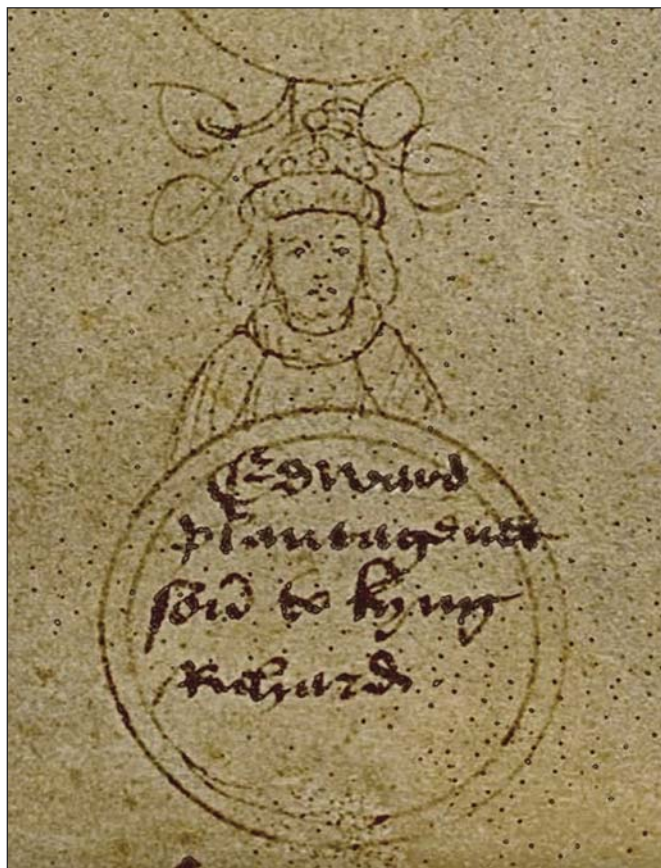 Edward
plantagenet
son to kyng
Richard